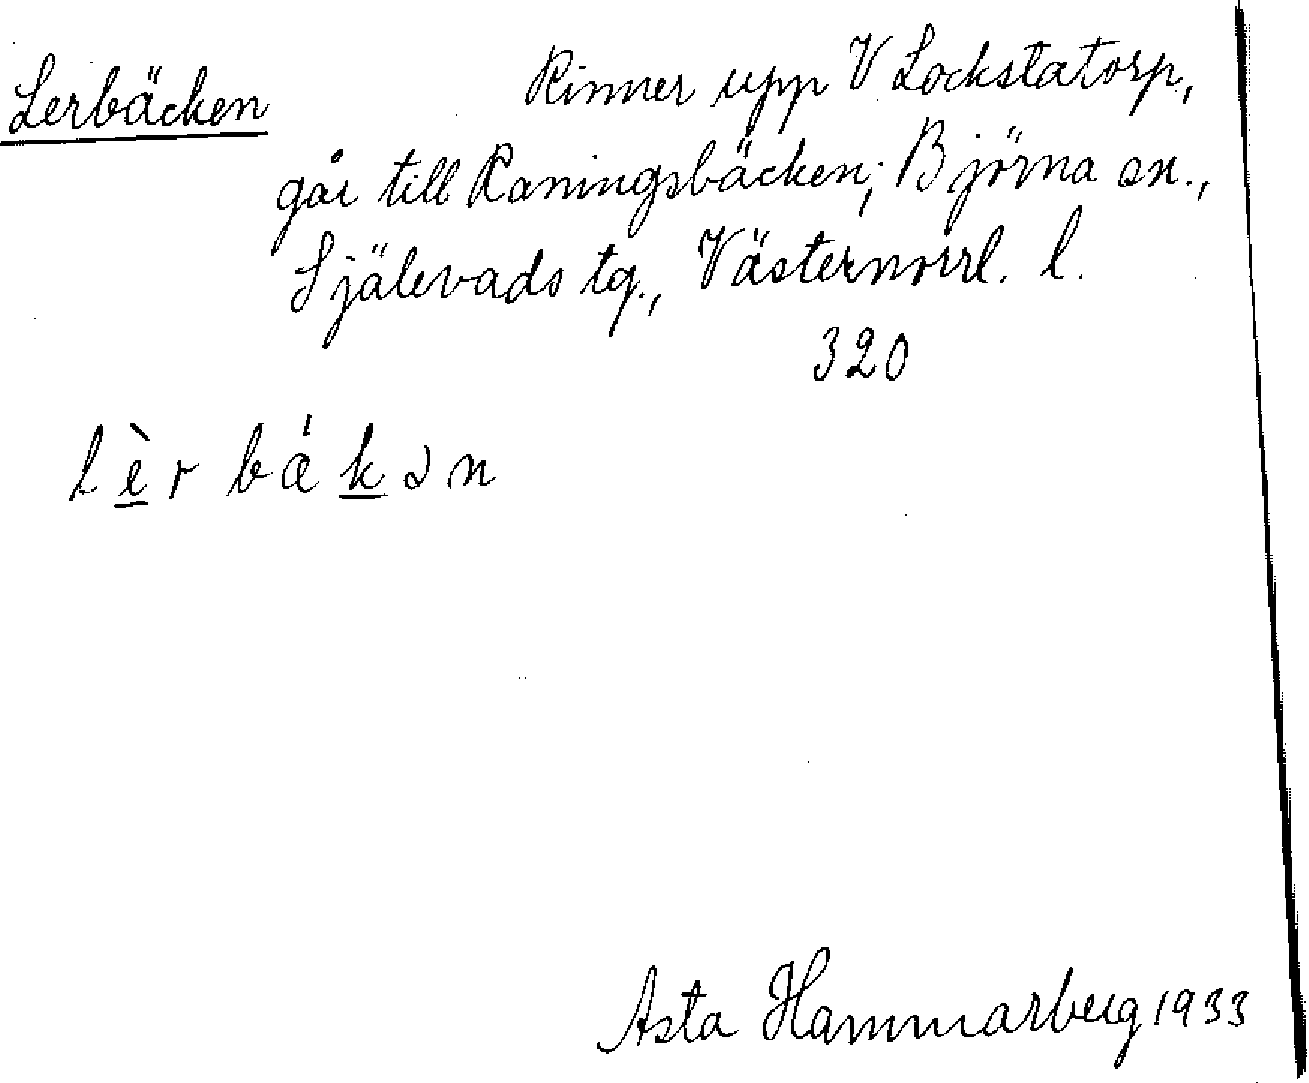 Lerbäcken Rinner upp V Lockstatorp,
går till Raningsbäcken; Björna sn.,
Själevads tg., Västernorrl. l.
320
l è r b ǽ k ə n
Asta Hammarberg 1933